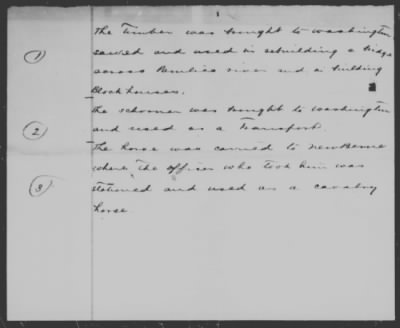 1
The Timber was brought to Washington
(1) sawed and used in rebuilding a bridge
across Pamlico river and in building
Block houses.
The schooner was brought to Washington
(2) and used as a Transport.
The horse was carried to NewBerne
where The officer who took him was
(3) stationed and used as a cavalry
horse.